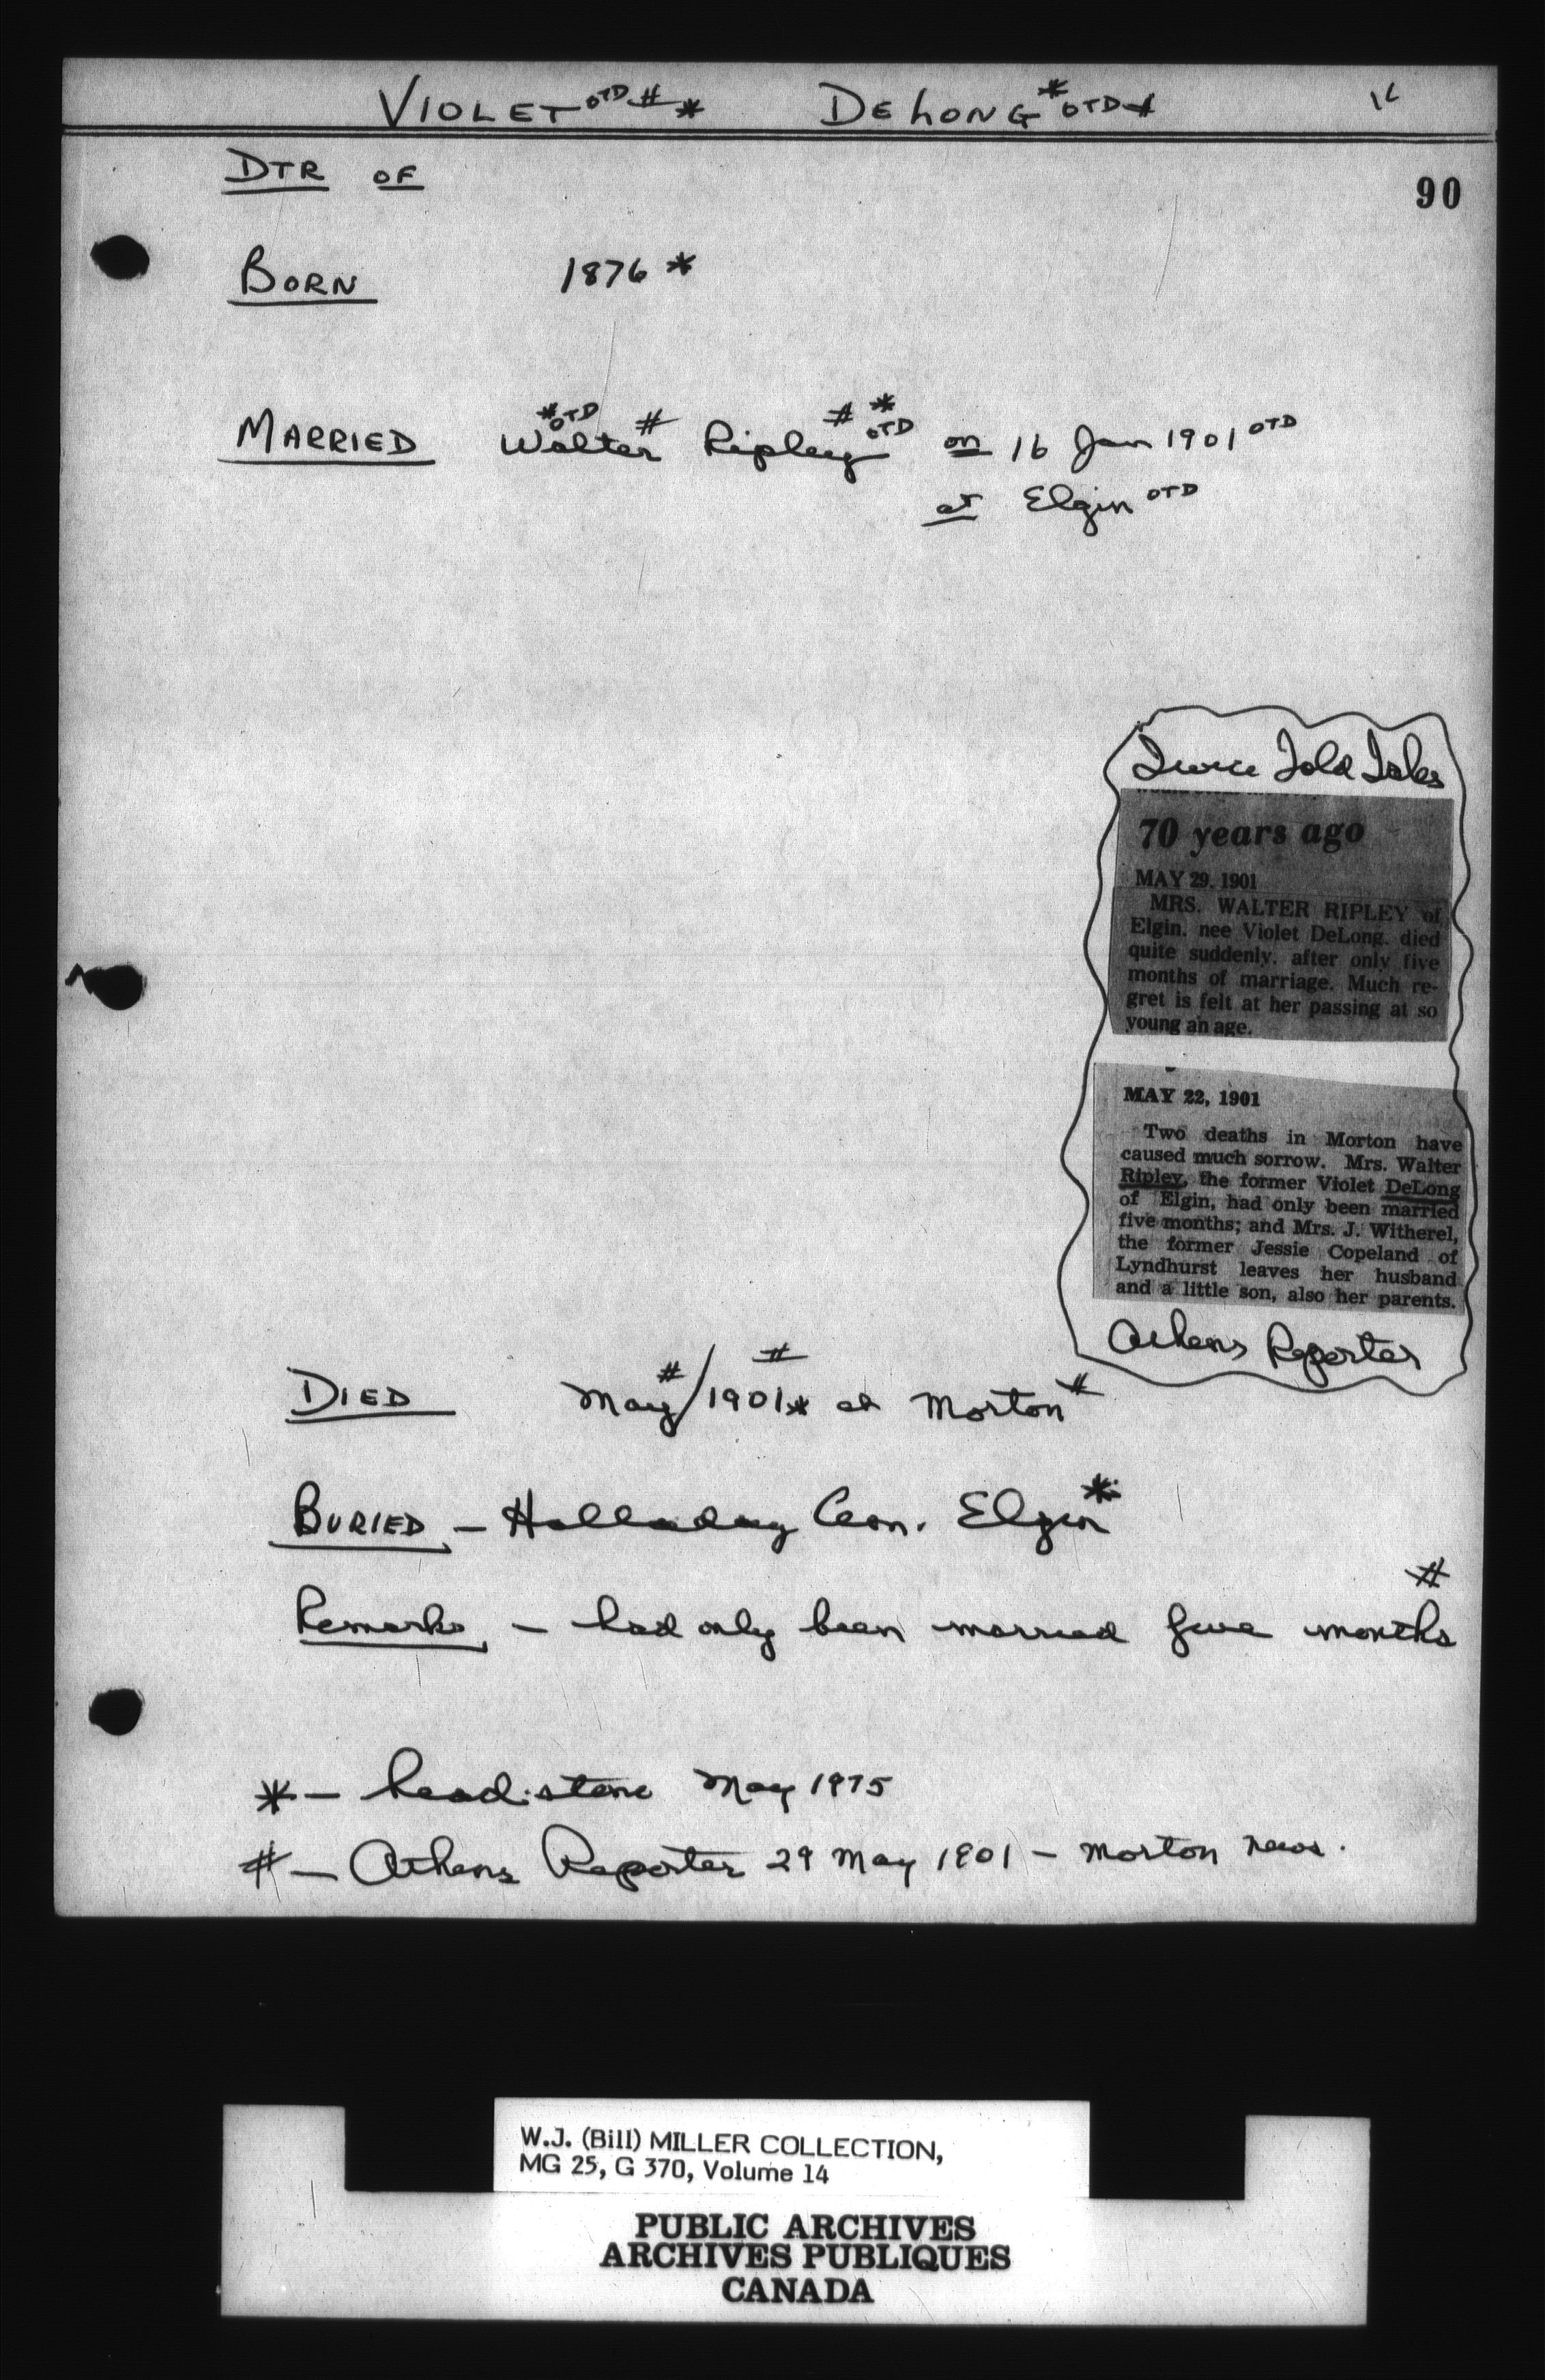 VIOLET OTD # * DELONG * OTD #
DTR OF
90
BORN 1876 *
MARRIED Walter * OTD # Ripley # * OTD on 16 Jan 1901 OTD
at Elgin OTD
Twice Told Tales
70 years ago
MAY 29, 1901
MRS. WALTER RIPLEY of
Elgin, nee Violet DeLong, died
quite suddenly, after only five
months of marriage. Much re-
gret is felt at her passing at so
young an age.
MAY 22, 1901
Two deaths in Morton have
caused much sorrow. Mrs. Walter
Ripley, the former Violet DeLong
of Elgin, had only been married
five months; and Mrs. J. Witherel,
the former Jessie Copeland of
Lyndhurst leaves her husband
and a little son, also her parents.
Athens Reporter
DIED May # / 1901 # * at Morton #
BURIED - Halladay Cem. Elgin *
Remarks - had only been married five months #
* - head stone May 1975
# - Athens Reporter 29 May 1901 - Morton news.
W.J. (Bill) MILLER COLLECTION,
MG 25, G 370, Volume 14
PUBLIC ARCHIVES
ARCHIVES PUBLIQUES
CANADA